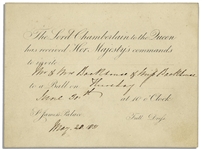 The Lord Chamberlain to the Queen
has received Her Majesty's commands
to invite
Mr & Mrs Backhouse & Miss Backhouse
to a Ball on Thursday
June 20th at 10 o'Clock
St James's Palace Full Dress
May 20